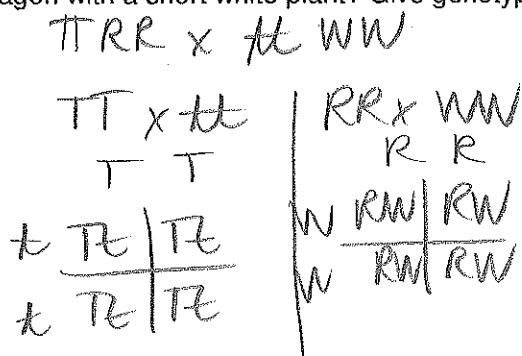 agon with a short white plant? Give genotyp
TTRR x tt WW
TT x tt
T T
t Tt Tt
t Tt Tt
RR x WW
R R
W RW RW
W RW RW